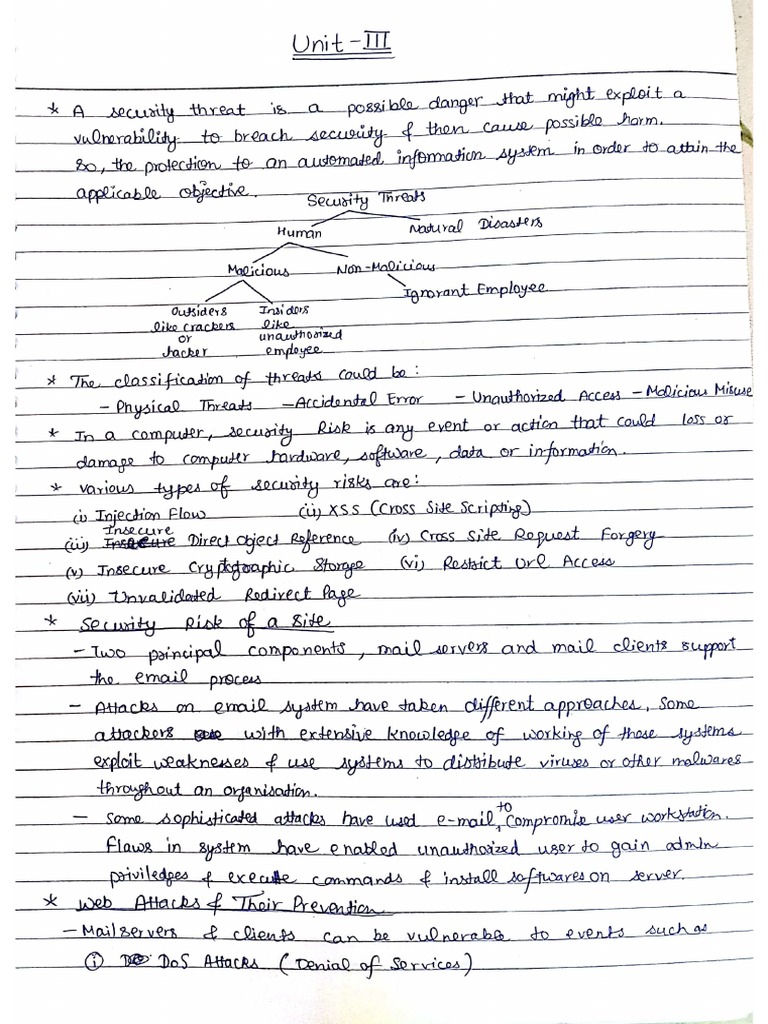 Unit-III
* A security threat is a possible danger that might exploit a
vulnerability to breach security & then cause possible harm.
So, the protection to an automated information system in order to attain the
applicable objective.
Security Threats
Human Natural Disasters
Malicious Non-Malicious
Ignorant Employee
Outsiders Insiders
like crackers like
or unauthorized
hacker employee
* The classification of threats could be:
- Physical Threats - Accidental Error - Unauthorized Access - Malicious Misuse
* In a computer, security Risk is any event or action that could loss or
damage to computer hardware, software, data or information.
* various types of security risks are:
(i) Injection Flow (ii) XSS (Cross Site Scripting)
(iii) Insecure Direct Object Reference (iv) Cross Site Request Forgery
(v) Insecure Cryptographic Storage (vi) Restrict Url Access
(vii) Unvalidated Redirect Page
* Security Risk of a Site
- Two principal components, mail servers and mail clients support
the email process
- Attacks on email system have taken different approaches, Some
attackers with extensive knowledge of working of those systems
exploit weaknesses & use systems to distribute viruses or other malwares
throughout an organisation.
- Some sophisticated attacks have used e-mail, to compromise user workstation.
Flaws in system have enabled unauthorized user to gain admin
priviledges & execute commands & install softwares on server.
* Web Attacks & Their Prevention
- Mail servers & clients can be vulnerable to events such as
(i) DoS Attacks (Denial of Services)